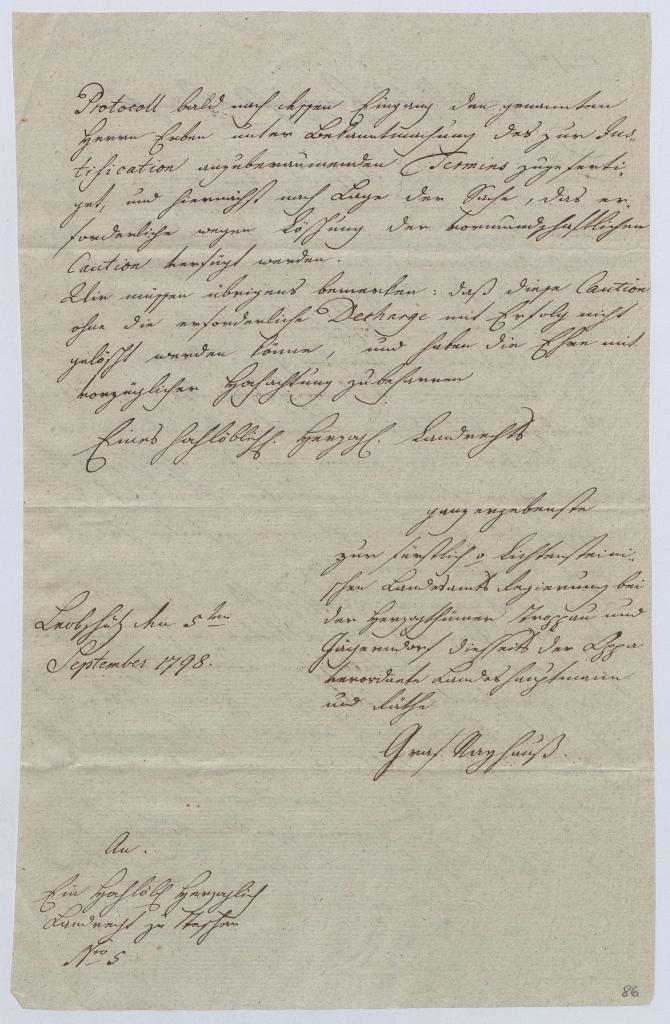 Protocoll bald nach dessen Eingang den genannten
Herrn Erben unter Bekanntmachung des zur Jus-
tification anzuberaumenden Termins zugeferti-
get, und hiernächst nach Lage der Sache, das er-
forderliche wegen Löschung der vormundschaftlichen
Caution verfügt werden.
Wir müssen übrigens bemerken: daß diese Caution
ohne die erforderliche Decharge mit Erfolg nicht
gelöscht werden könne, und haben die Ehre mit
vorzüglicher Hochachtung zu beharren
Eines Hochlöblich. Herzogl. Landrechts
ganz ergebenste
zur Fürstlich Lichtensteini-
schen Landesamts Regierung bei
der Herzogthümer Troppau und
Jägerndorf diesseits der Oppa
verordnete Landeshauptmann
und Räthe
Leobschütz den 5ten
September 1798.
Graf Nayhauß.
An.
Ein Hochlöbl Herzoglich
Landrecht zu Teschen
Nro 5
86